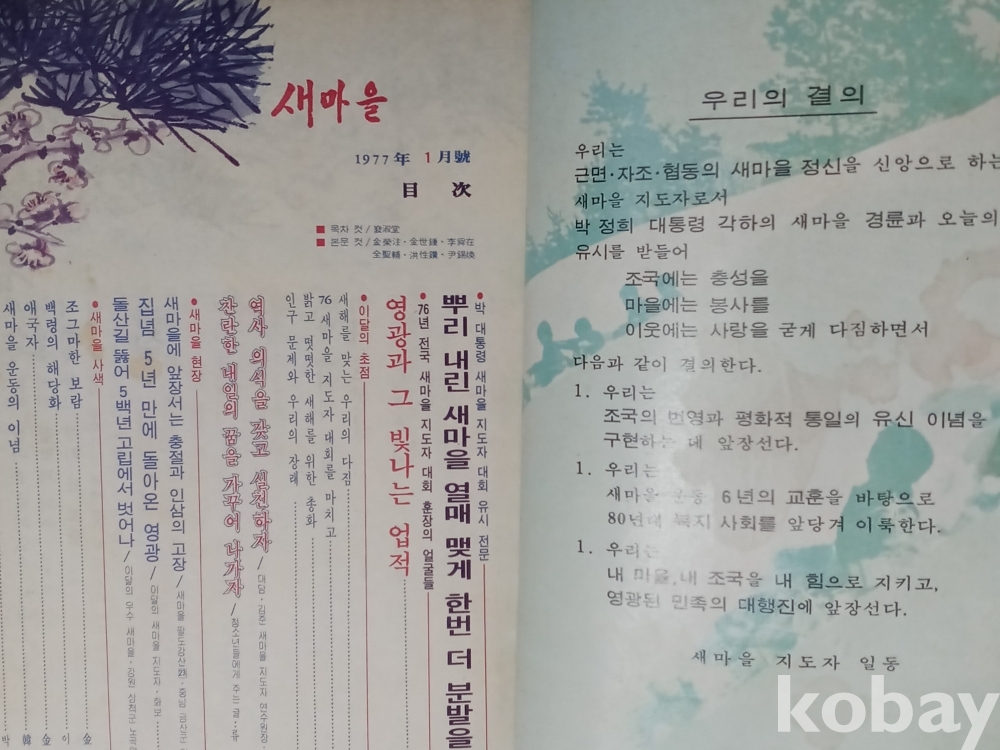 새마을
1977年 1月號
目 次
■ 목차 컷 /
■ 본문 컷 / 金榮注·金世鍾·李舜在
全聖輔·洪性讚·尹錫煥
● 박 대통령 새마을 지도자 대회 유시 전문
뿌리 내린 새마을 열매 맺게 한번 더 분발을
● 76년 전국 새마을 지도자 대회 훈장의 얼굴들
영광과 그 빛나는 업적
● 이달의 초점
새해를 맞는 우리의 다짐
76 새마을 지도자 대회를 마치고
밝고 떳떳한 새해를 위한 총화
인구 문제와 우리의 장래
역사 의식을 갖고 실천하자 / 대담·김준 새마을 지도자 연수원장·
찬란한 내일의 꿈을 가꾸어 나가자 / 청소년들에게 주는 글·류
● 새마을 현장
새마을에 앞장서는 충절과 인삼의 고장 / 새마을 팔도강산·충남 금산군
집념 5년 만에 돌아온 영광 / 이달의 새마을 지도자·화보
돌산길 뚫어 5백년 고립에서 벗어나 / 이달의 우수 새마을·강원 삼척군 노곡면
● 새마을 사색
조그마한 보람 金
백령의 해당화 이
애국자 韓
새마을 운동의 이념 박
우리의 결의
우리는
근면·자조·협동의 새마을 정신을 신앙으로 하는
새마을 지도자로서
박 정희 대통령 각하의 새마을 경륜과 오늘의
유시를 받들어
조국에는 충성을
마을에는 봉사를
이웃에는 사랑을 굳게 다짐하면서
다음과 같이 결의한다.
1. 우리는
조국의 번영과 평화적 통일의 유신 이념을
구현하는 데 앞장선다.
1. 우리는
새마을 운동 6년의 교훈을 바탕으로
80년대 복지 사회를 앞당겨 이룩한다.
1. 우리는
내 마을, 내 조국을 내 힘으로 지키고,
영광된 민족의 대행진에 앞장선다.
새마을 지도자 일동
kobay